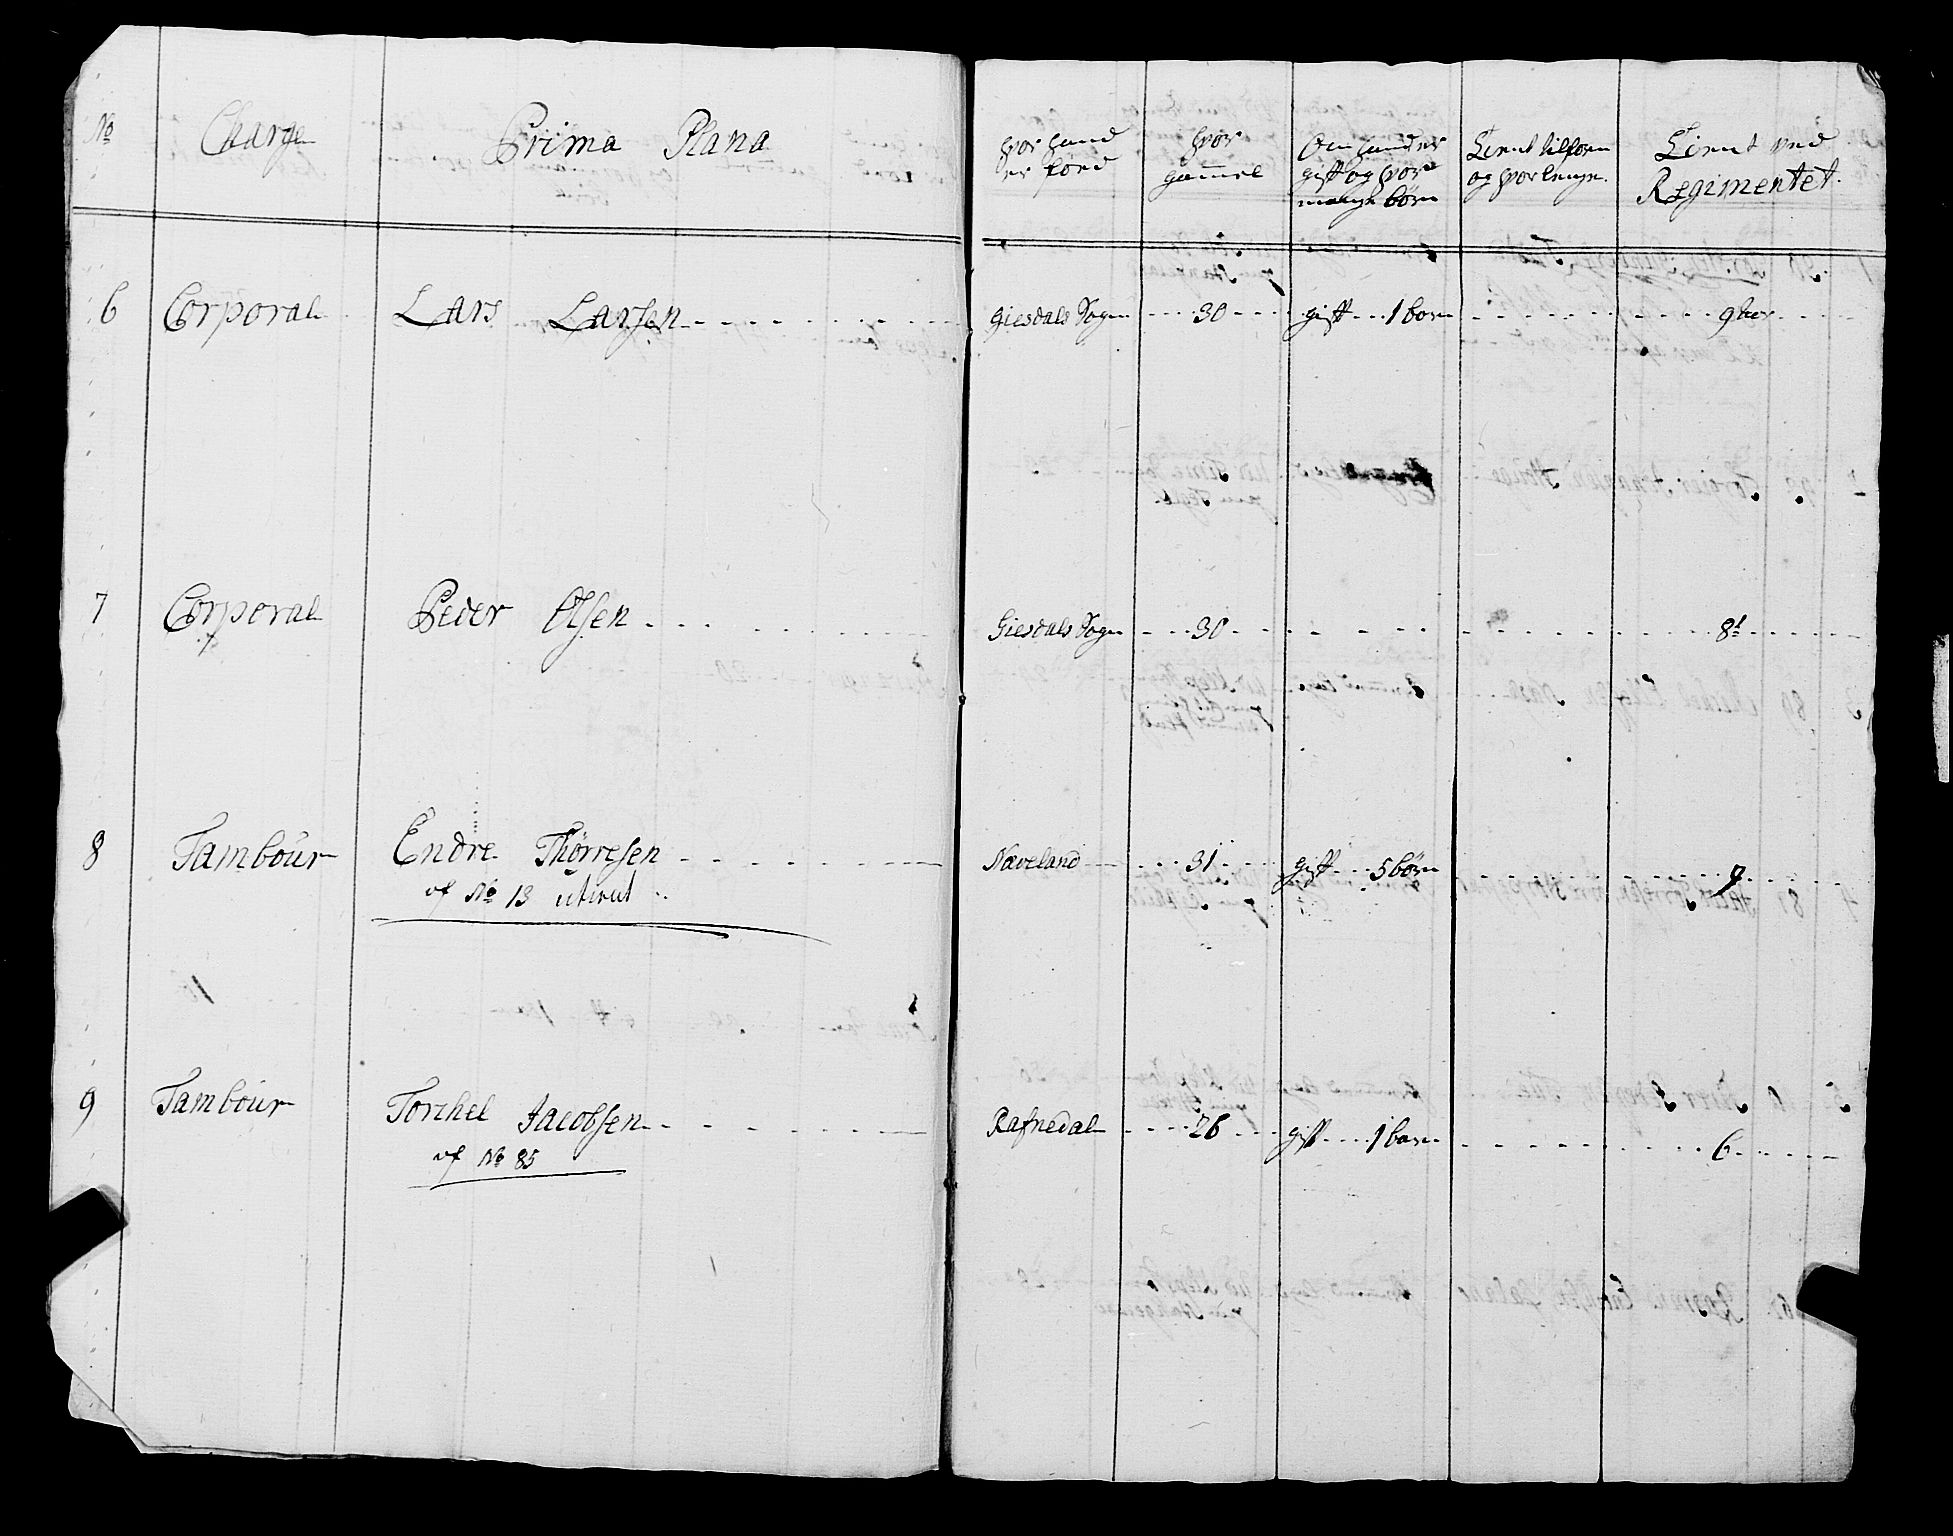 No Charge Prima Plana
hvor hand er föed
hvor gammel
Om hand er gift og hvor mange börn
Tient tilforn og hvor lenge.
Tient ved Regimentet.
6 Corporal Lars Larsen Giesdals Sogn 30 gift 1 barn 9
7 Corporal Peder Olsen Giesdals Sogn 30 8
8 Tambour Endre Thørresen Naveland 31 gift 5 börn 9
af No 13
9 Tambour Torchel Jacobsen Rafnedal 26 gift 1 barn 6
af No 85